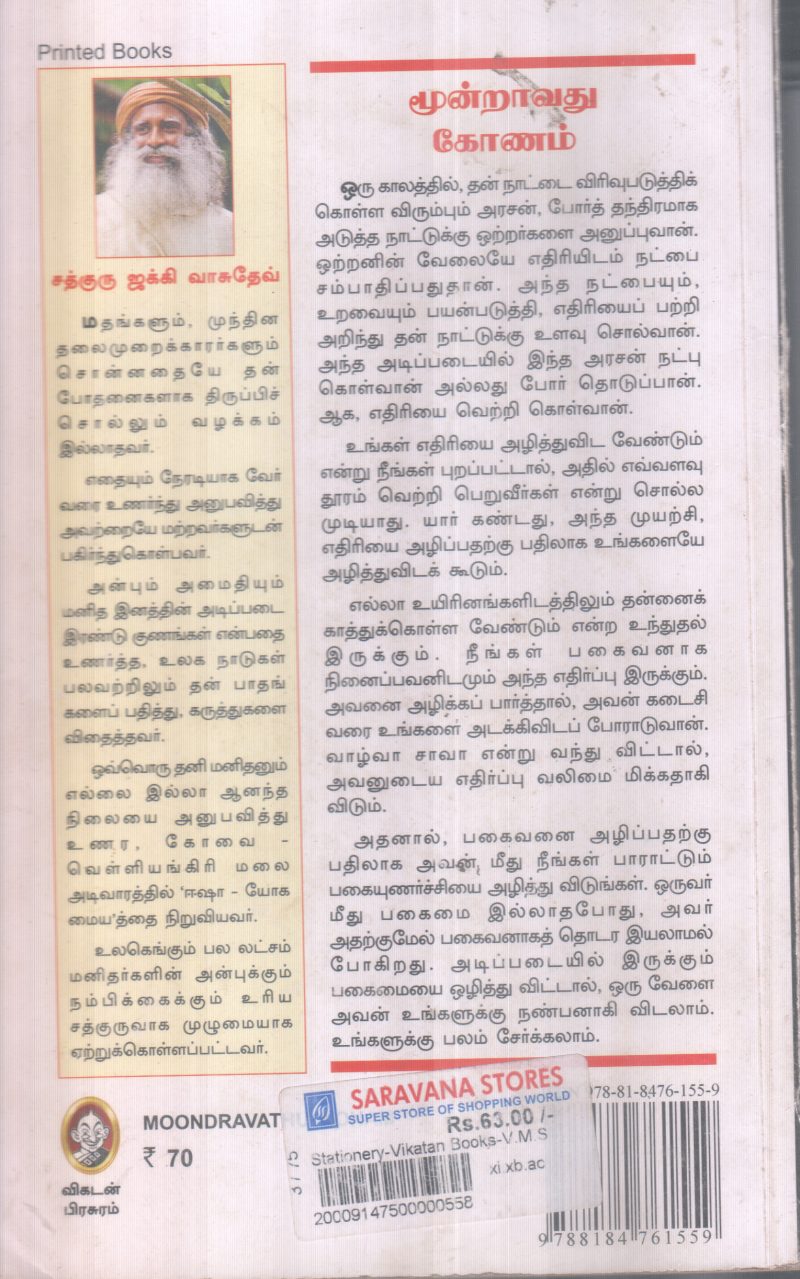 Printed Books
சத்குரு ஜக்கி வாசுதேவ்
மதங்களும், முந்தின
தலைமுறைக்காரர்களும்
சொன்னதையே தன்
போதனைகளாக திருப்பிச்
சொல்லும் வழக்கம்
இல்லாதவர்.
எதையும் நேரடியாக வேர்
வரை உணர்ந்து அனுபவித்து
அவற்றையே மற்றவர்களுடன்
பகிர்ந்துகொள்பவர்.
அன்பும் அமைதியும்
மனித இனத்தின் அடிப்படை
இரண்டு குணங்கள் என்பதை
உணர்த்த, உலக நாடுகள்
பலவற்றிலும் தன் பாதங்
களைப் பதித்து, கருத்துகளை
விதைத்தவர்.
ஒவ்வொரு தனி மனிதனும்
எல்லை இல்லா ஆனந்த
நிலையை அனுபவித்து
உணர, கோவை -
வெள்ளியங்கிரி மலை
அடிவாரத்தில் 'ஈஷா - யோக
மைய'த்தை நிறுவியவர்.
உலகெங்கும் பல லட்சம்
மனிதர்களின் அன்புக்கும்
நம்பிக்கைக்கும் உரிய
சத்குருவாக முழுமையாக
ஏற்றுக்கொள்ளப்பட்டவர்.
மூன்றாவது
கோணம்
ஒரு காலத்தில், தன் நாட்டை விரிவுபடுத்திக்
கொள்ள விரும்பும் அரசன், போர்த் தந்திரமாக
அடுத்த நாட்டுக்கு ஒற்றர்களை அனுப்புவான்.
ஒற்றனின் வேலையே எதிரியிடம் நட்பை
சம்பாதிப்பதுதான். அந்த நட்பையும்,
உறவையும் பயன்படுத்தி, எதிரியைப் பற்றி
அறிந்து தன் நாட்டுக்கு உளவு சொல்வான்.
அந்த அடிப்படையில் இந்த அரசன் நட்பு
கொள்வான் அல்லது போர் தொடுப்பான்.
ஆக, எதிரியை வெற்றி கொள்வான்.
உங்கள் எதிரியை அழித்துவிட வேண்டும்
என்று நீங்கள் புறப்பட்டால், அதில் எவ்வளவு
தூரம் வெற்றி பெறுவீர்கள் என்று சொல்ல
முடியாது. யார் கண்டது, அந்த முயற்சி,
எதிரியை அழிப்பதற்கு பதிலாக உங்களையே
அழித்துவிடக் கூடும்.
எல்லா உயிரினங்களிடத்திலும் தன்னைக்
காத்துக்கொள்ள வேண்டும் என்ற உந்துதல்
இருக்கும். நீங்கள் பகைவனாக
நினைப்பவனிடமும் அந்த எதிர்ப்பு இருக்கும்.
அவனை அழிக்கப் பார்த்தால், அவன் கடைசி
வரை உங்களை அடக்கிவிடப் போராடுவான்.
வாழ்வா சாவா என்று வந்து விட்டால்,
அவனுடைய எதிர்ப்பு வலிமை மிக்கதாகி
விடும்.
அதனால், பகைவனை அழிப்பதற்கு
பதிலாக அவன் மீது நீங்கள் பாராட்டும்
பகையுணர்ச்சியை அழித்து விடுங்கள். ஒருவர்
மீது பகைமை இல்லாதபோது, அவர்
அதற்குமேல் பகைவனாகத் தொடர இயலாமல்
போகிறது. அடிப்படையில் இருக்கும்
பகைமையை ஒழித்து விட்டால், ஒரு வேளை
அவன் உங்களுக்கு நண்பனாகி விடலாம்.
உங்களுக்கு பலம் சேர்க்கலாம்.
விகடன்
பிரசுரம்
MOONDRAVAT
₹ 70
SARAVANA STORES
SUPER STORE OF SHOPPING WORLD
Rs.63.00 /-
Stationery-Vikatan Books-V.M.S
xi.xb.ac
20009147500000558
978-81-8476-155-9
9 788184 761559